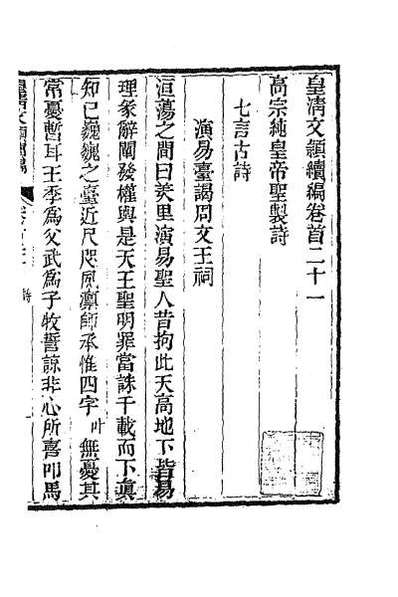 皇清文穎續編卷首二十一
高宗純皇帝聖製詩
七言古詩
演易臺謁周文王祠
洹蕩之間曰羑里演易聖人昔拘此天高地下皆易
理彖辭闡發權輿是天王聖明罪當誅千載而下真
知已巍巍之臺近尺咫風凛師承惟四字叶無憂其
常憂暫耳王季為父武為子牧誓諒非心所喜叩馬